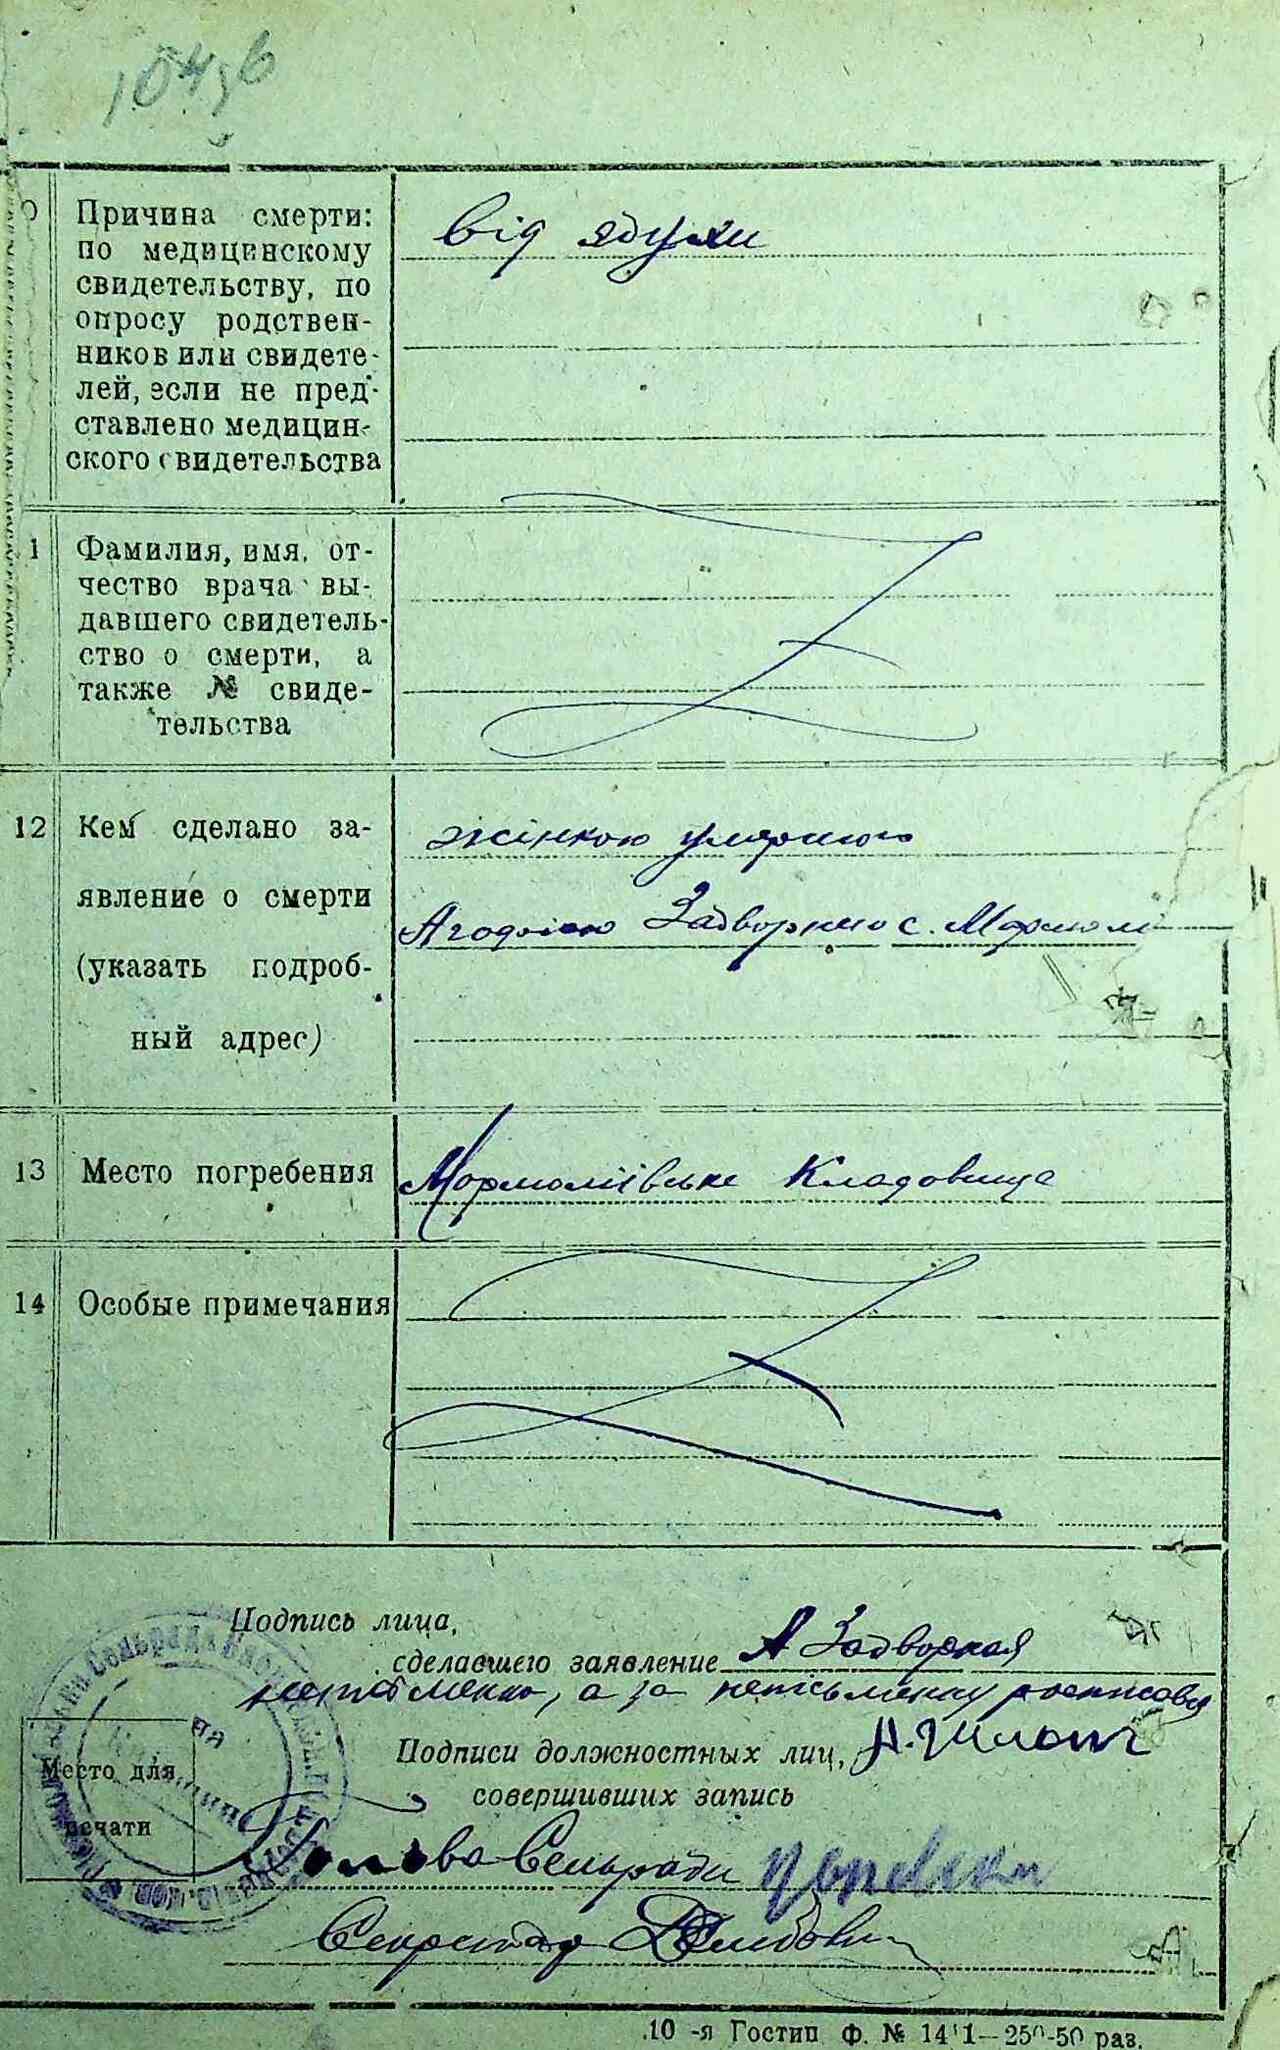 Причина смерти:
по медицинскому
свидетельству, по
опросу родствен-
ников или свидете-
лей, если не пред-
ставлено медицин-
ского свидетельства
від ядухи
1 Фамилия, имя, от-
чество врача вы-
давшего свидетель-
ство о смерти, а
также № свиде-
тельства
12 Кем сделано за-
явление о смерти
(указать подроб-
ный адрес)
жінкою умершого
Задворною с.
13 Место погребения
Мормоліївське Кладовище
14 Особые примечания
Подпись лица,
сделавшего заявление А Задворная
неписьменна, а за неписьменну росписався
Подписи должностных лиц,
совершивших запись
Место для
печати
Голова Сельради
Секретар
10-я Гостип Ф. № 1411—250-50 раз.